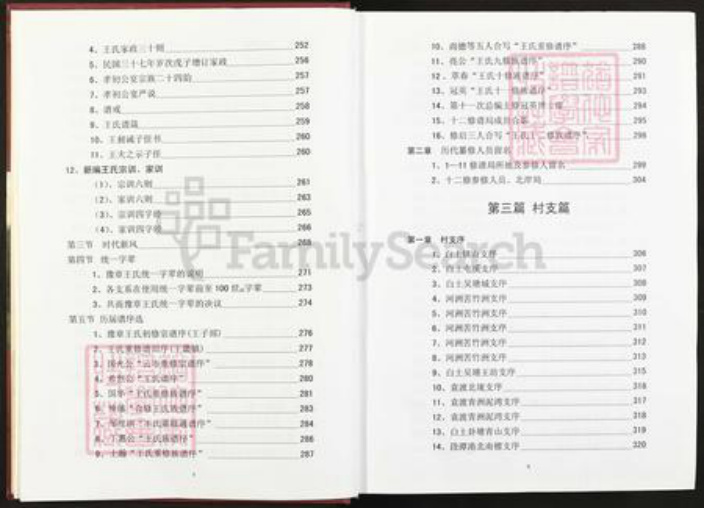 4、王氏家政三十则 252
5、民国三十七年岁次戊子增订家政 256
6、孝初公宴宗族二十四韵 257
7、孝初公宴严说 257
8、谱戒 258
9、王氏谱箴 259
10、王昶诫子侄书 260
11、王大之示子侄 260
12、新编王氏宗训、家训
(1)、宗训六则 261
(2)、家训六则 263
(3)、宗训四字经 265
(4)、家训四字经 266
第三节 时代新风 268
第四节 统一字辈
1、豫章王氏统一字辈的说明 271
2、各支系在使用统一字辈前至100世字辈 273
3、共商豫章王氏统一字辈的决议 274
第五节 历届谱序选
1、豫章王氏初修宗谱序(王子邵) 276
2、王氏重修谱旧序 277
3、 278
4、 "王氏谱序" 280
5、国华"王氏重修族谱序" 281
6、 王氏族谱序" 283
7、 284
8、丁惠公"王氏族谱序" 286
9、上翰"王氏重修族谱序" 287
10、尚德等五人合写"王氏重修谱序" 288
11、亮公"王氏九修族谱序" 291
12、 "王氏十修族谱序" 281
13、冠英"王氏十一修族谱序" 293
14、第十一次总编主修冠英 294
15、十二修谱局成员合影 295
16、修后三人合写"王氏十 修族谱序" 298
第二章 历代纂修人员留名
1、1—11修谱局所地及参修人留名 299
2、十二修参修人员、北岸局 304
第三篇 村支篇
第一章 村支序
1、白土镇 支序 306
2、白土屯溪支序 307
3、白土吴塘城支序 308
4、河洲苦竹洲支序 309
5、河洲苦竹洲支序 310
6、河洲苦竹洲支序 311
7、河洲苦竹洲支序 312
8、河洲苦竹洲支序 313
9、白土吴塘王坊支序 315
10、袁渡北垅支序 316
11、袁渡青洲泥湾支序 317
12、袁渡青洲泥湾支序 318
13、白土 塘青山支序 319
14、段潭港北南楼支序 320